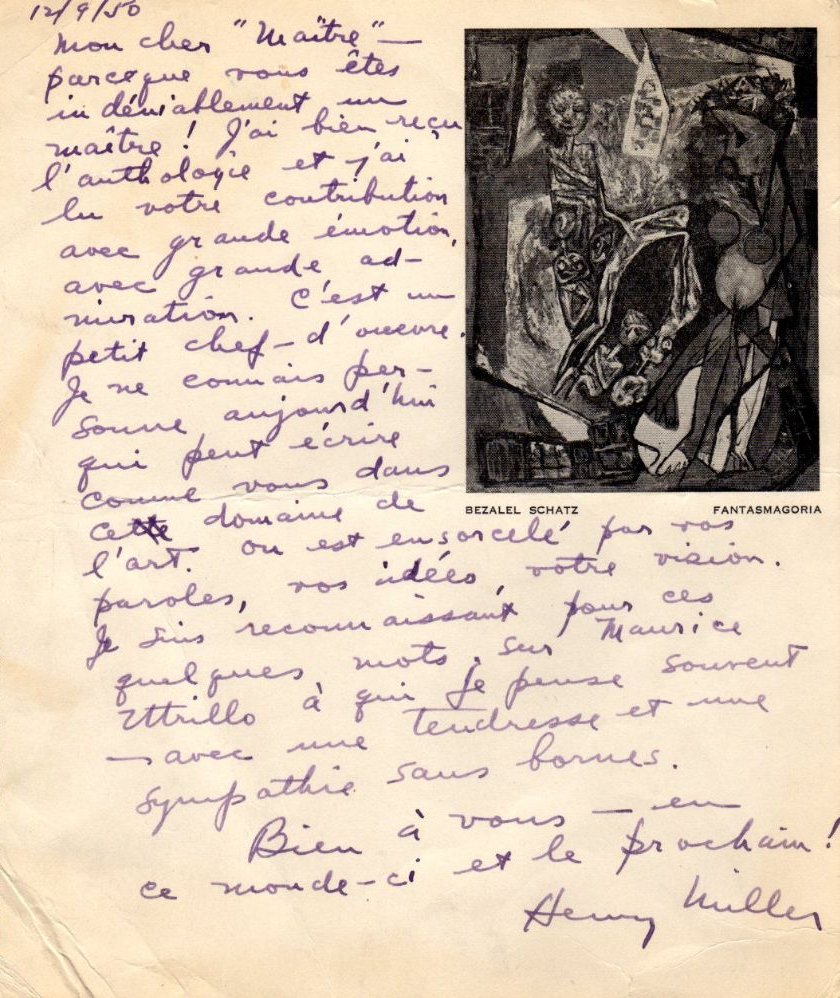 12/9/50
Mon cher "Maître" —
parceque vous êtes
indéniablement un
maître! J'ai bien reçu
l'anthologie et j'ai
lu votre contribution
avec grande émotion,
avec grande ad-
miration. C'est un
petit chef-d'oueuvre.
Je ne connais per-
sonne aujourd'hui
qui peut écrire
comme vous dans
cette domaine de
l'art. On est ensorcelé par vos
paroles, vos idées, votre vision.
Je suis reconnaissant pour ces
quelques mots sur Maurice
Utrillo à qui je pense souvent
— avec une tendresse et une
sympathie sans bornes.
Bien à vous — en
ce monde-ci et le prochain!
Henry Miller
BEZALEL SCHATZ FANTASMAGORIA